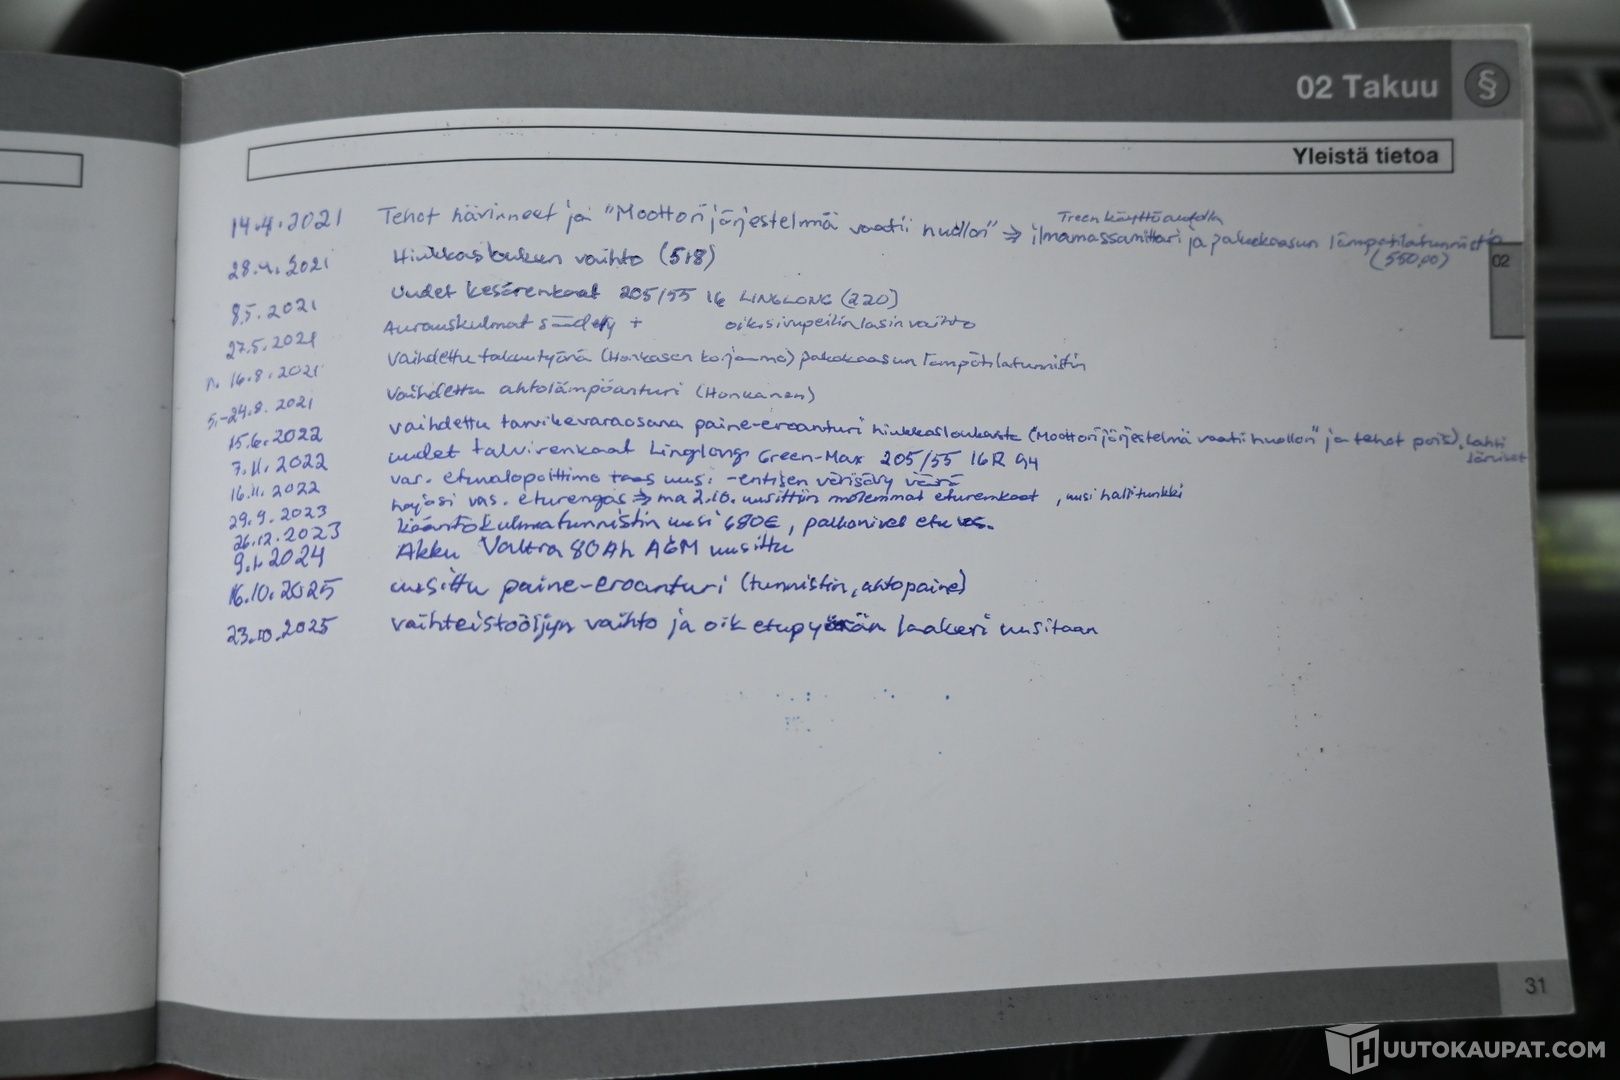 02 Takuu §
Yleistä tietoa
Treen käyttöautolla
14.4.2021 Tehot hävinneet ja "Moottorijärjestelmä vaatii huollon" => ilmamassamittari ja pakokaasun lämpötilatunnistin
(550,00)
28.4.2021 Hiukkasloukun vaihto (518)
02
8.5.2021 Uudet kesärenkaat 205/55 16 LINGLONG (220)
27.5.2021 Aurauskulmat säädetty + oik. sivupeilin lasin vaihto
n. 16.8.2021 Vaihdettu takuutyönä (Honkasen korjaamo) pakokaasun lämpötilatunnistin
-24.8.2021 Vaihdettu ahtolämpöanturi (Honkanen)
15.6.2022 vaihdettu tarvikevaraosana paine-eroanturi hiukkasloukusta ("Moottorijärjestelmä vaatii huollon" ja tehot pois), Lahti
7.11.2022 uudet talvirenkaat Linglong Green-Max 205/55 16R 94
16.11.2022 var. etuvalopolttimo taas uusi -entisen värisävy väärä
29.9.2023 hajosi vas. eturengas => ma 2.10. uusittiin molemmat eturenkaat, uusi hallitunkki
26.12.2023 kääntökulmatunnistin uusi 680€, pallonivel etu vas.
9.1.2024 Akku Valtra 80Ah AGM uusittu
16.10.2025 uusittu paine-eroanturi (tunnistin, ahtopaine)
23.10.2025 vaihteistoöljyn vaihto ja oik etupyörän laakeri uusitaan
31
HUUTOKAUPAT.COM